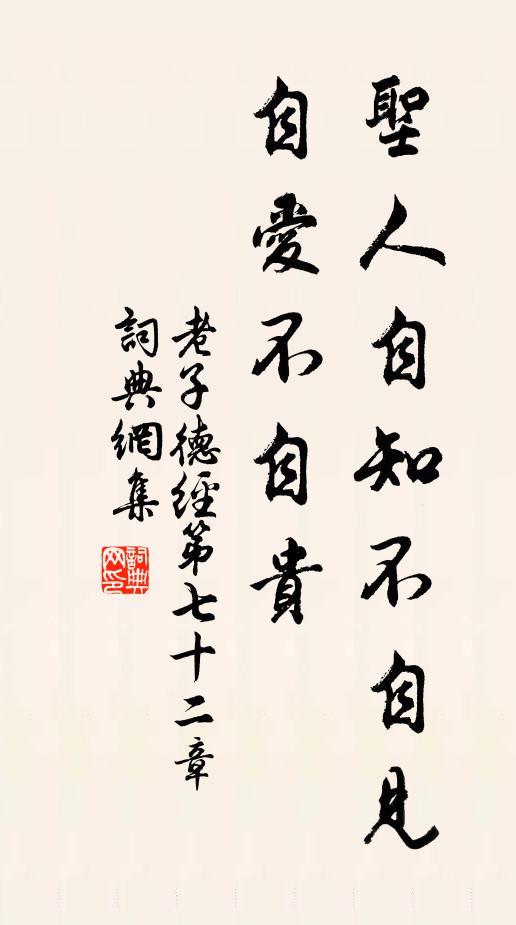 聖人自知不自見
自愛不自貴
老子德經第七十二章
詞典網集
詞典網印